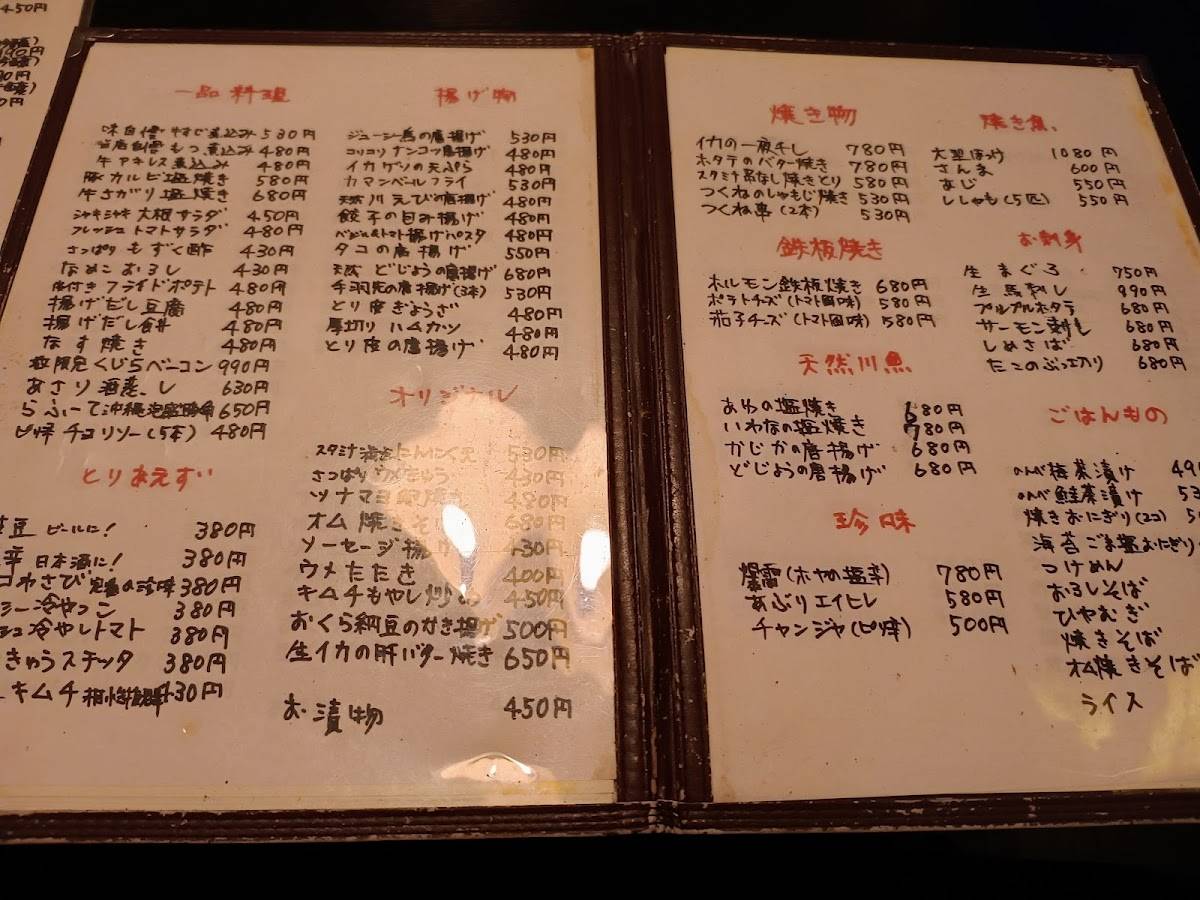 450円
一品料理
味自慢 牛すじ煮込み 530円
当店自慢 もつ煮込み 480円
牛アキレス煮込み 480円
豚カルビ塩焼き 580円
牛さがり塩焼き 680円
シャキシャキ大根サラダ 450円
フレッシュトマトサラダ 480円
さっぱり もずく酢 430円
なめこおろし 430円
皮付きフライドポテト 480円
揚げだし豆腐 480円
揚げだし 480円
なす焼き 480円
数限定くじらベーコン 990円
あさり酒蒸し 630円
らふーて沖縄 650円
ピ辛チョリソー(5本) 480円
とりあえず
豆 ビールに! 380円
辛 日本酒に! 380円
コわさび 珍味 380円
シー冷やっこ 380円
シュ冷やしトマト 380円
きゅうスティック 380円
キムチ 430円
揚げ物
ジューシー馬の唐揚げ 530円
コリコリナンコツ唐揚げ 480円
イカゲソの天ぷら 480円
カマンベールフライ 530円
天然川えびの唐揚げ 480円
餃子の包み揚げ 480円
トマト揚げパスタ 480円
タコの唐揚げ 550円
天然どじょうの唐揚げ 680円
手羽先の唐揚げ(3本) 530円
とり皮ぎょうざ 480円
厚切りハムカツ 480円
とり皮の唐揚げ 480円
オリジナル
スタミナ にんにく 530円
さっぱりウメきゅう 430円
ツナマヨ 480円
オム焼きそば 680円
ソーセージ揚げ 430円
ウメたたき 400円
キムチもやし炒め 450円
おくら納豆のかき揚げ 500円
生イカの肝バター焼き 650円
お漬物 450円
焼き物
イカの一夜干し 780円
ホタテのバター焼き 780円
スタミナ串なし焼きとり 580円
つくねのしゃもじ焼き 530円
つくね串(2本) 530円
鉄板焼き
ホルモン鉄板焼き 680円
ポテトチーズ(トマト風味) 580円
茄子チーズ(トマト風味) 580円
天然川魚
あゆの塩焼き 680円
いわなの塩焼き 780円
かじかの唐揚げ 680円
どじょうの唐揚げ 680円
珍味
爆雷(ホヤの塩辛) 780円
あぶりエイヒレ 580円
チャンジャ(ピ辛) 500円
焼き魚
大型ほっけ 1080円
さんま 600円
あじ 550円
ししゃも(5匹) 550円
お刺身
生まぐろ 750円
生馬刺し 990円
プルプルホタテ 680円
サーモン刺し 680円
しめさば 680円
たこのぶつ切り 680円
ごはんもの
のんべ梅茶漬け 490
のんべ鮭茶漬け 53
焼きおにぎり(2コ) 50
海苔ごま塩おにぎり
つけめん
おろしそば
ひやむぎ
焼きそば
オム焼きそば
ライス